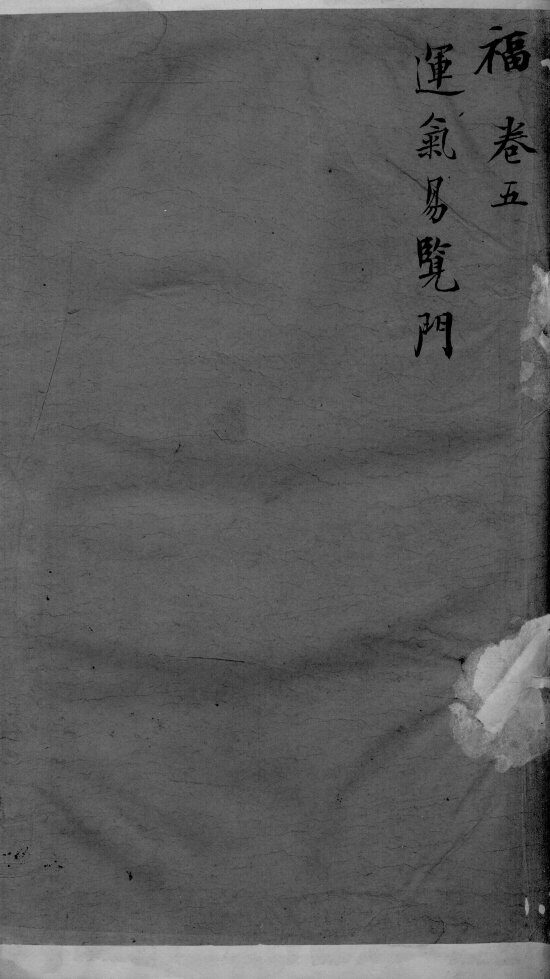 福 卷五
運氣易覽門